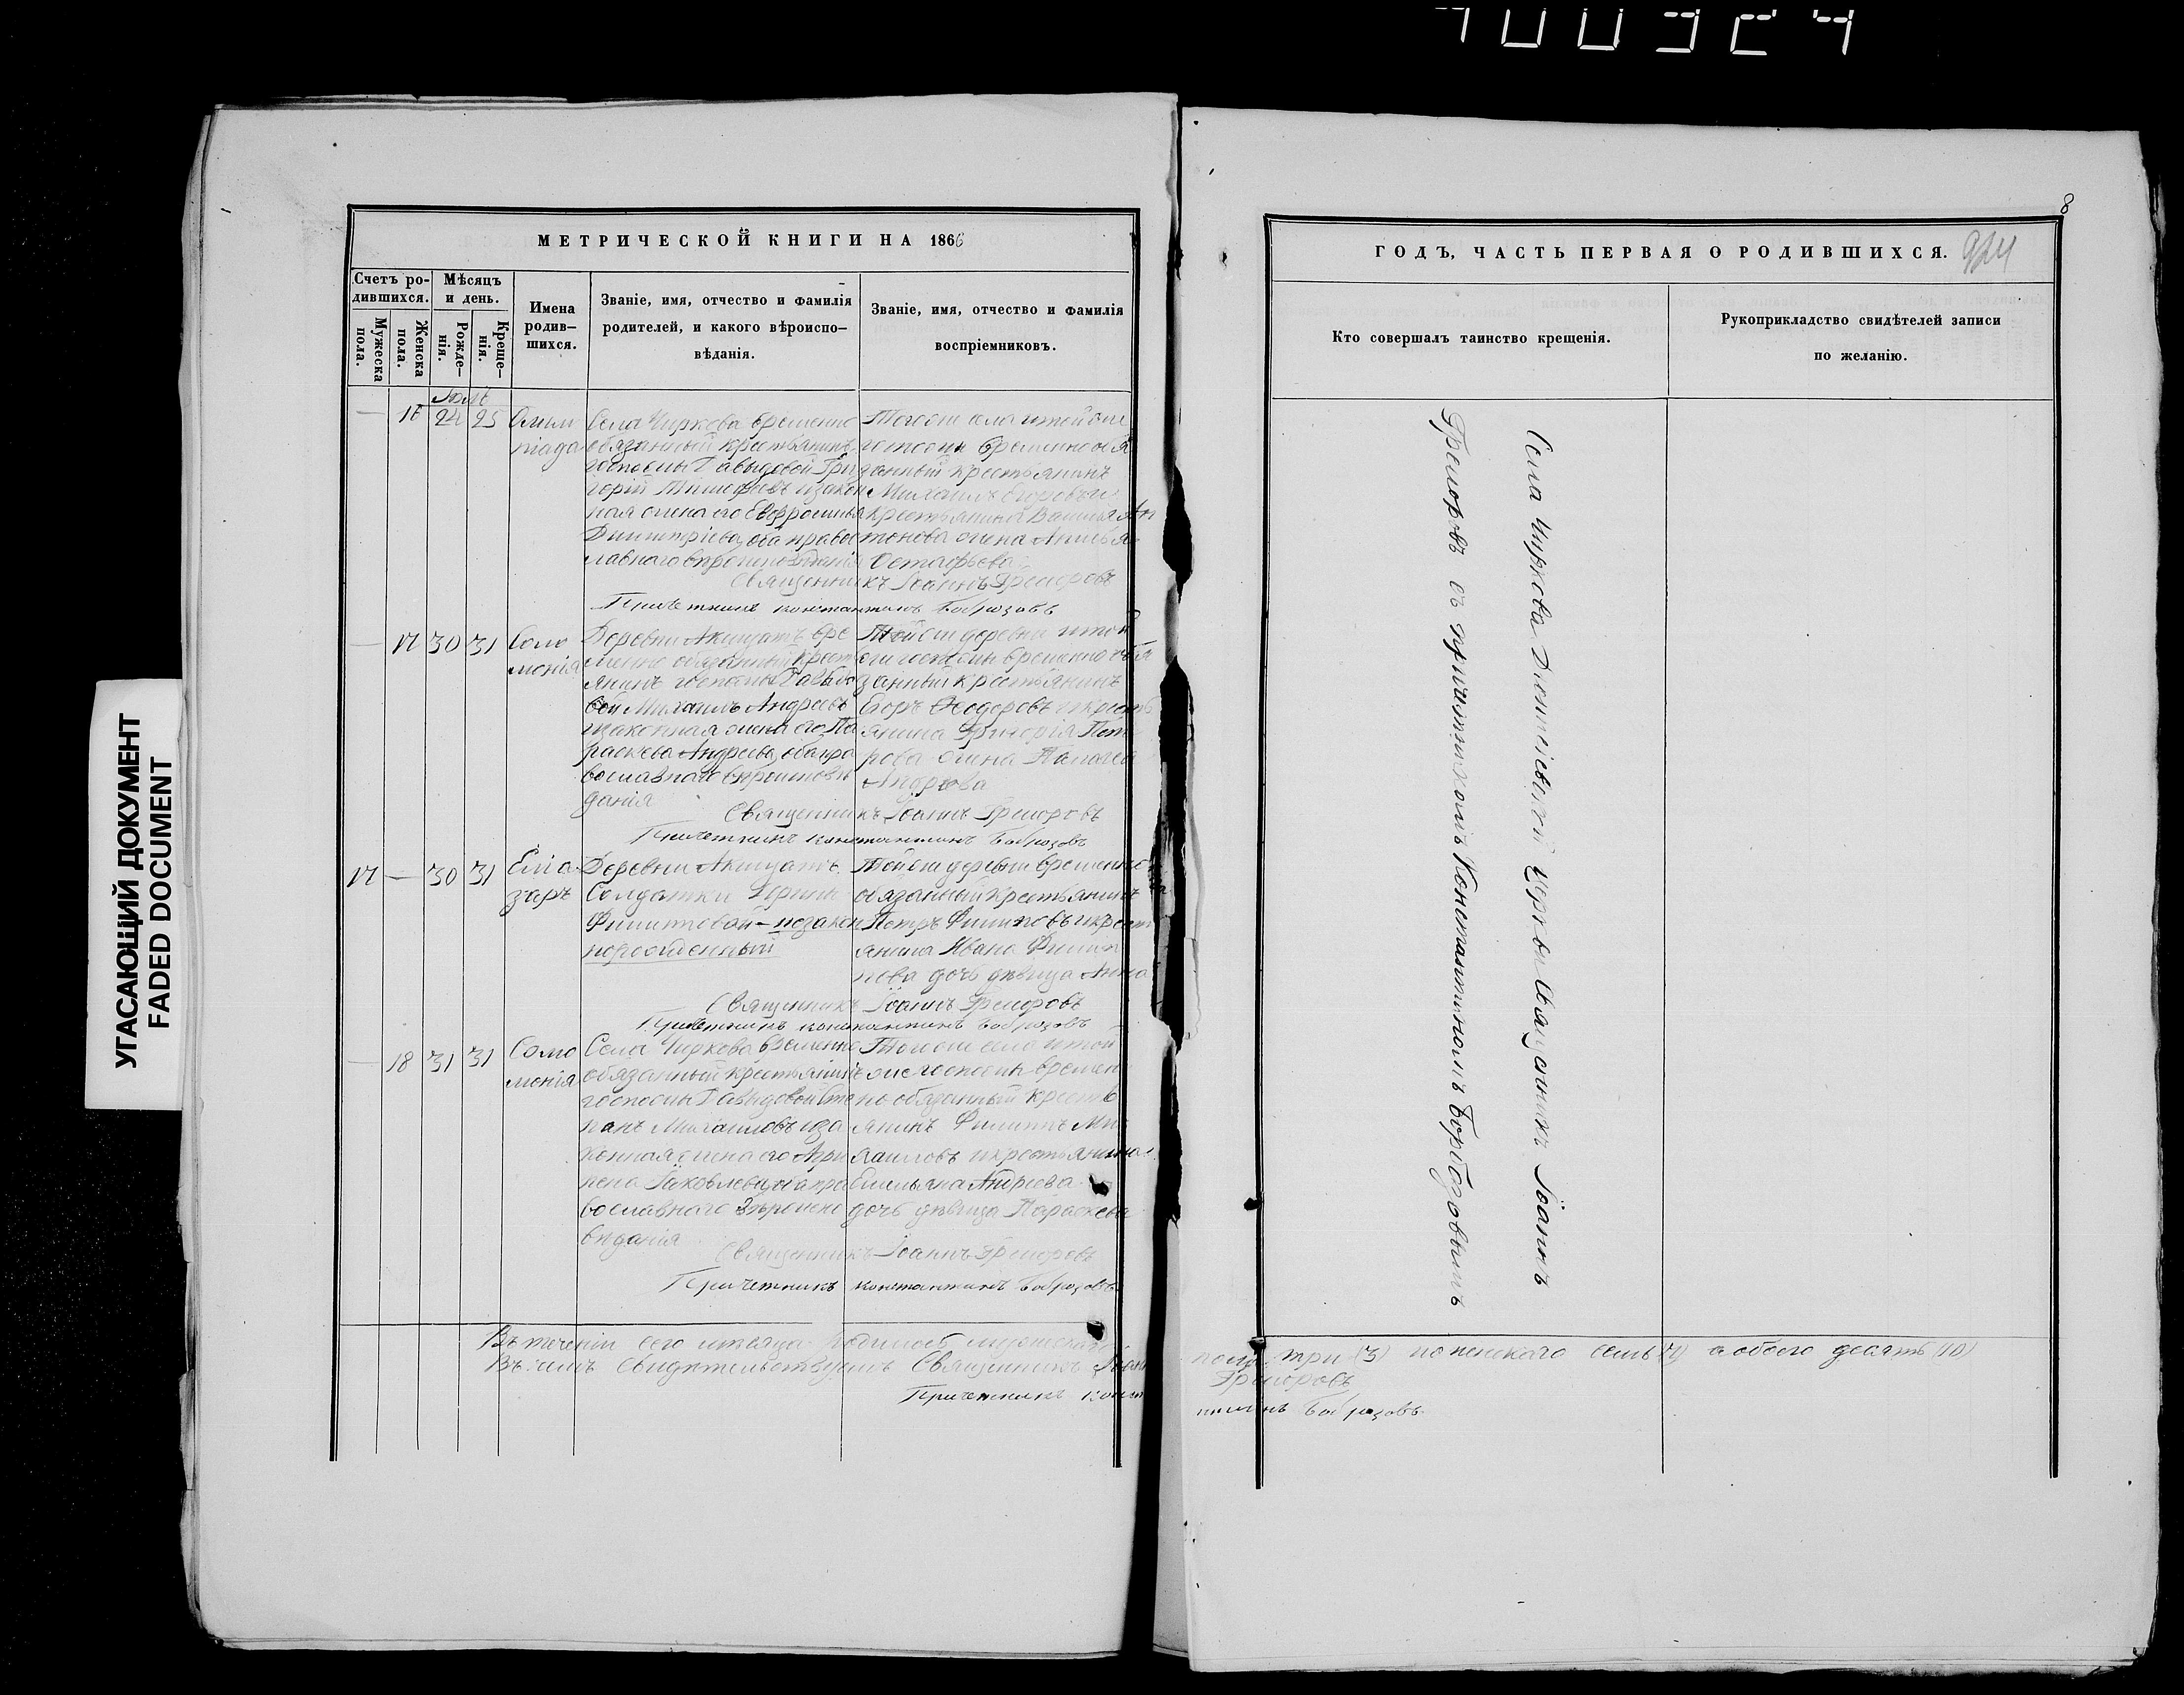 УГАСАЮЩИЙ ДОКУМЕНТ
FADED DOCUMENT
МЕТРИЧЕСКОЙ КНИГИ НА 1866
Счетъ ро-
дившихся.
Мужеска
пола.
Женска
пола.
Мѣсяцъ
и день.
Рожде-
нія.
Креще-
нія.
Имена
родив-
шихся.
Званіе, имя, отчество и фамилія
родителей, и какого вѣроиспо-
вѣданія.
Званіе, имя, отчество и фамилія
воспріемниковъ.
— 16 24 25
Олим
піада
Села Чиркова временно
обязанный крестьянинъ
госпожи Давыдовой Гри
горій Тимофѣевъ изакон
ная жена его Евфросинья
Димитріева, оба правос
лавнаго вѣроисповѣданія
Тогоже села итойже
госпожи временнообя
занный крестьянинъ
Михаилъ Егоровъ и
крестьянина Василья Ан
тонова жена
Остафьева
Священникъ Іоаннъ Григоровъ
Причетникъ Константинъ
— 17 30 31
Соло
монія
Деревни Акишатъ вре
менно обязанный крест
янинъ госпожи Давыдо
вой Михаилъ Андреевъ
изаконная жена его Па
раскева Андреева, оба пра
вославнаго вѣроисповѣ
данія
Тойже деревни итой
же госпожи временно обя
занный крестьянинъ
Егоръ Ѳеодоровъ икресть
янина Григорія Пет
рова жена
Андреева
Священникъ Іоаннъ Григоровъ
Причетникъ Константинъ
17 — 30 31
Еліа
заръ
Деревни Акишатъ
Солдатки Ирины
Филипповой – незакон
норожденный
Тойже деревни временно
обязанный крестьянинъ
Петръ Филиповъ икрест
янина Ивана Филип
пова дочь дѣвица Анна
Священникъ Іоаннъ Григоровъ
Причетникъ Константинъ
— 18 31 31
Соло
монія
Села Чиркова временно
обязанный крестьянинъ
госпожи Давыдовой Сте
панъ Михаиловъ иза
конная жена его Агри
пена Іаковлева, оба пра
вославнаго вѣроиспо
вѣданія
Тогоже села итой
же госпожи времен
но обязанный кресть
янинъ Филиппъ Ми
хаиловъ икрестьянина
Емельяна Андреева
дочь дѣвица Параскева
Священникъ Іоаннъ Григоровъ
Причетникъ Константинъ
Въ теченіи сего мѣсяца родилось мужескаго
Въ семъ свидѣтельствуемъ Священникъ Іоаннъ
Причетникъ Конст
8
ГОДЪ, ЧАСТЬ ПЕРВАЯ О РОДИВШИХСЯ.
Кто совершалъ таинство крещенія.
Рукоприкладство свидѣтелей записи
по желанію.
Села Чиркова Димитріевской церкви Священникъ Іоаннъ
Григоровъ съ причетникомъ Константиномъ
пола три (3) поженскаго семь (7) а обоего десять (10)
Григоровъ